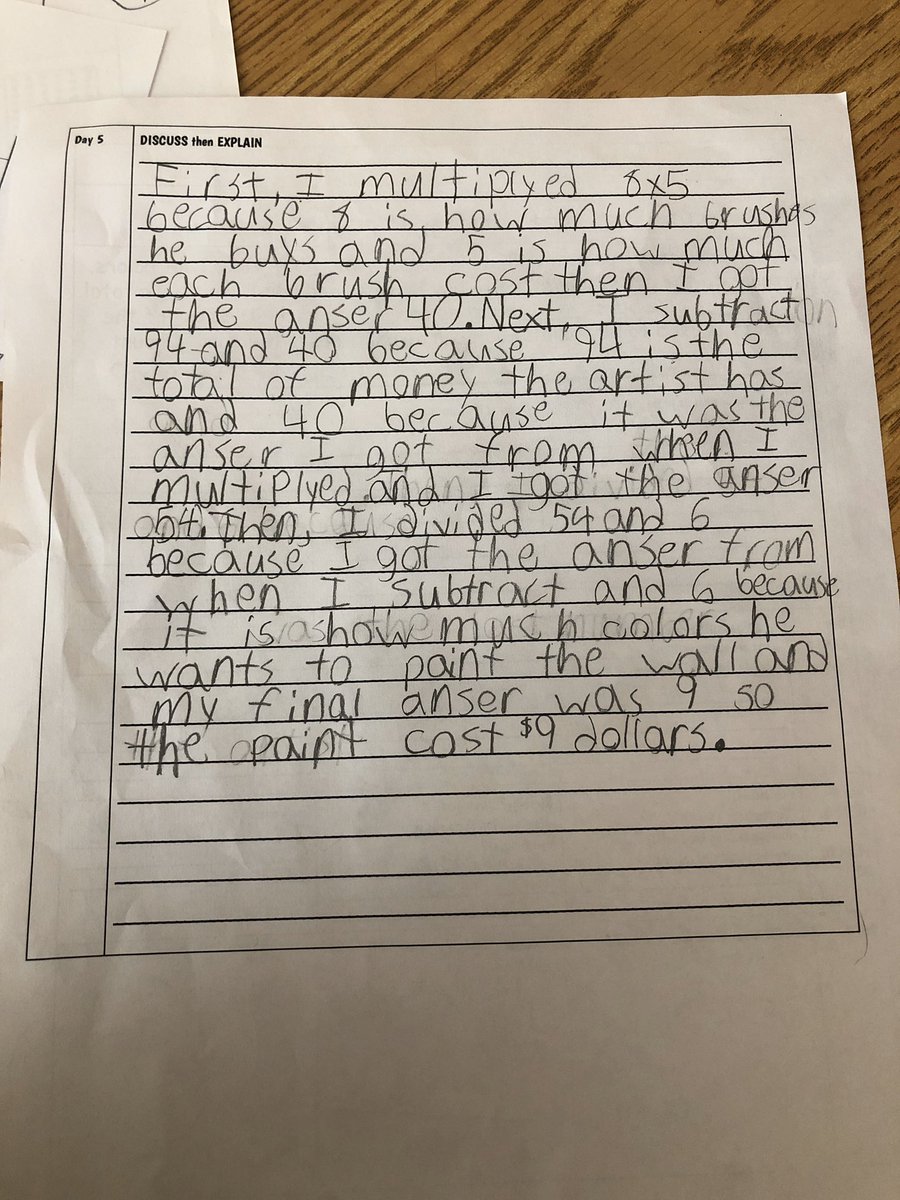 Day 5
DISCUSS then EXPLAIN
First, I multiplyed 8x5
because 8 is how much brushes
he buys and 5 is how much
each brush cost then I got
the anser 40. Next, I subtract
94 and 40 because 94 is the
total of money the artist has
and 40 because it was the
anser I got from when I
multiplyed and I got the anser
54. Then, I divided 54 and 6
because I got the anser from
when I subtract and 6 because
it is how much colors he
wants to paint the wall and
my final anser was 9 so
the paint cost $9 dollars.